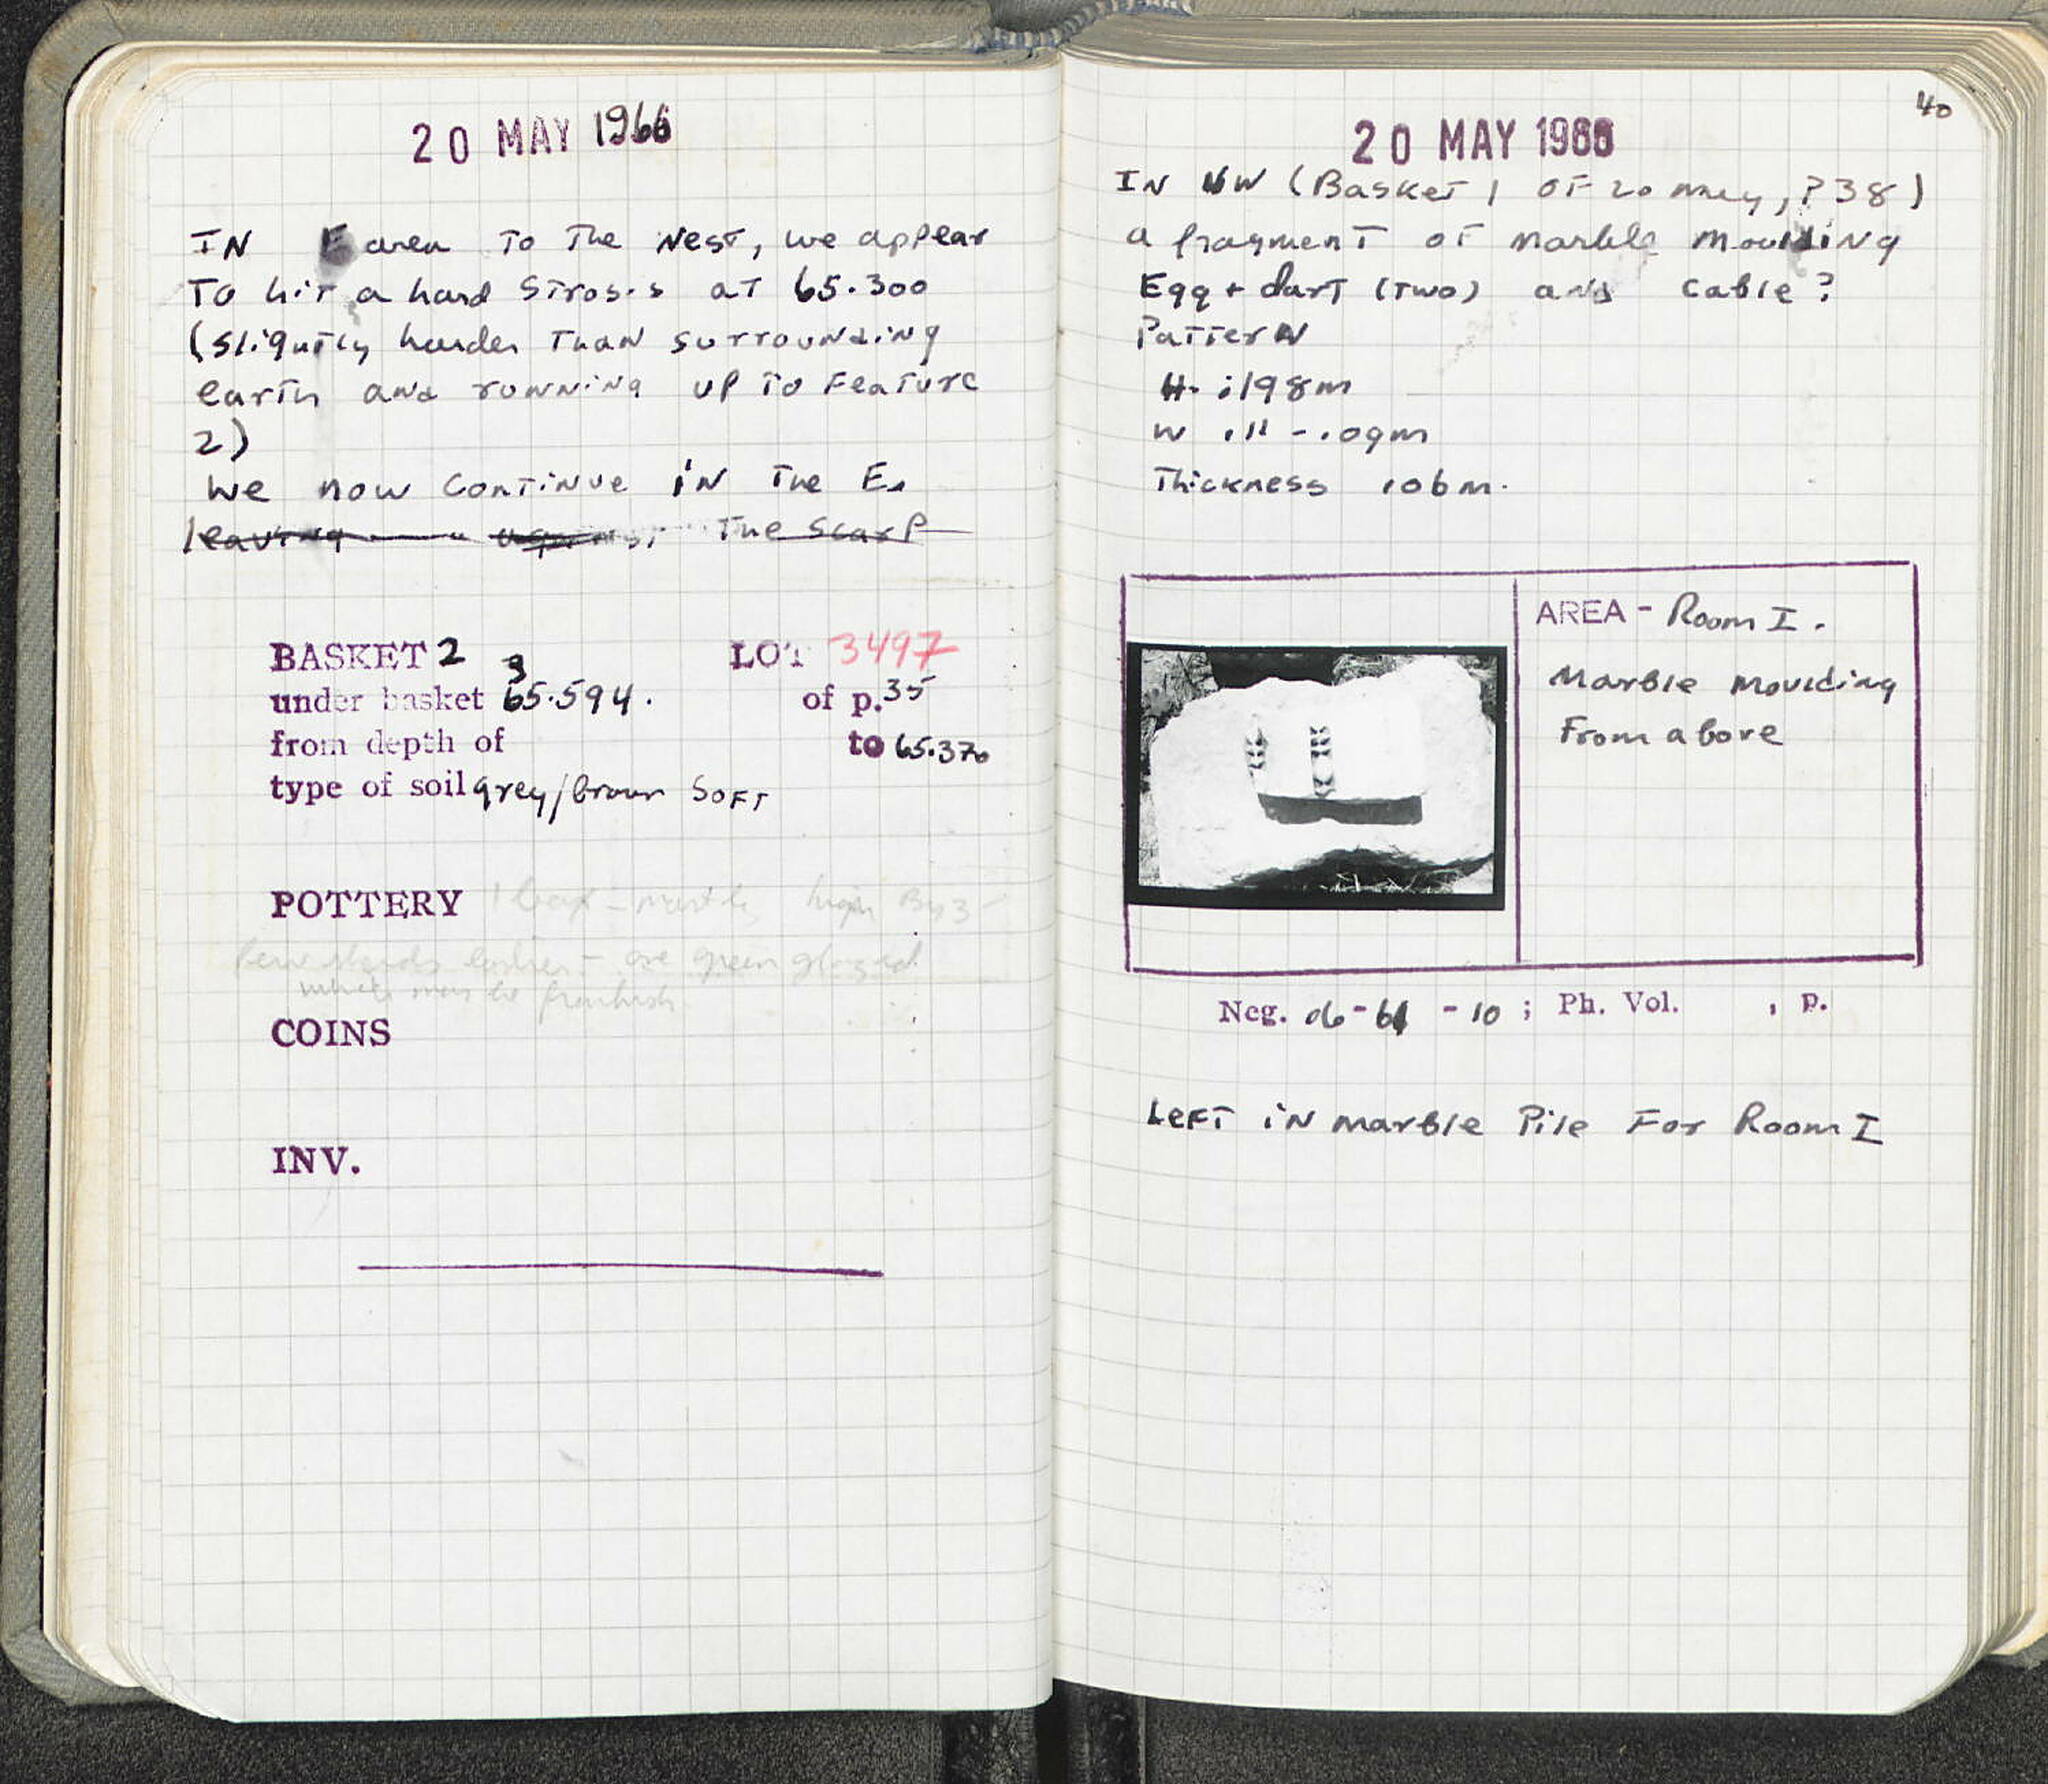 20 MAY 1966
IN E area To The West, we appear
To hit a hard Strosis at 65.300
(Slightly harder Than surrounding
earth and running up to Feature
2)
We now continue in The E.
leaving The Scarp
BASKET 2 LOT 3497
under basket 3 of p. 35
from depth of 65.594. to 65.370
type of soil grey/brown SOFT
POTTERY
COINS
INV.
40
20 MAY 1966
IN NW (Basket 1 of 20 May, P 38)
a fragment of marble moulding
Egg + dart (Two) and cable?
Pattern
H. .198m
W .11 - .09m
Thickness .06m.
AREA - Room I.
Marble moulding
From above
Neg. 06-61 -10 ; Ph. Vol. , p.
Left in marble Pile For Room I